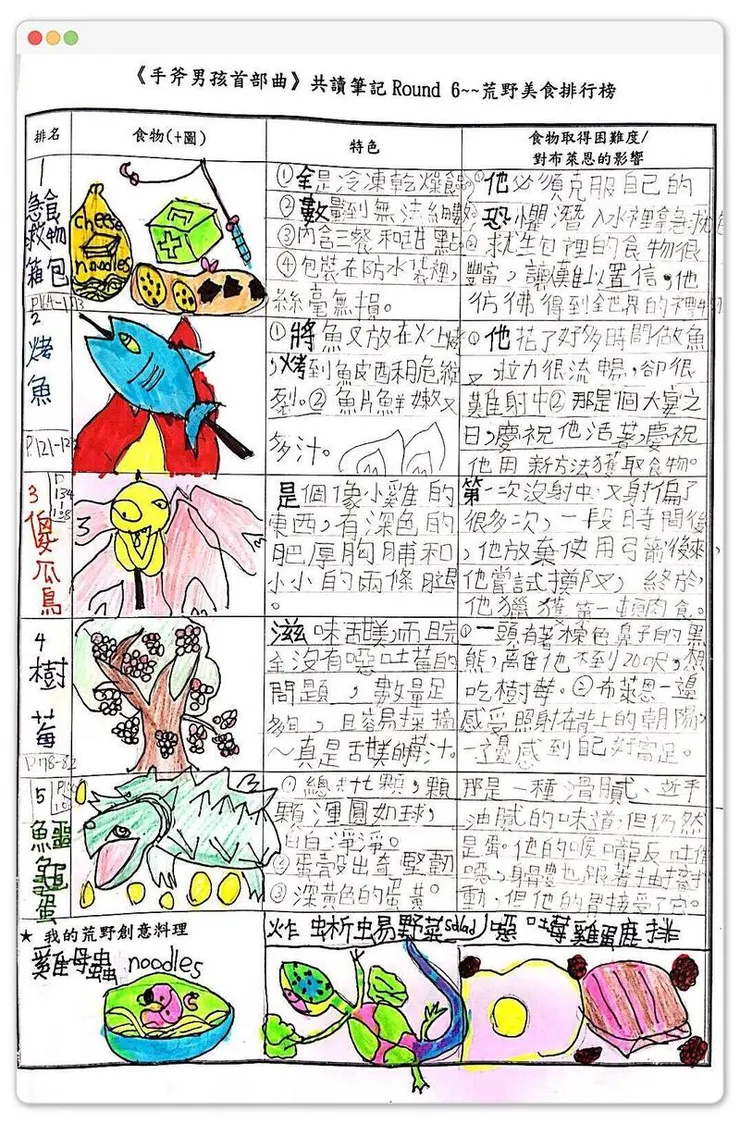 《手斧男孩首部曲》共讀筆記 Round 6~~荒野美食排行榜
排名
食物(+圖)
特色
食物取得困難度/
對布萊恩的影響
1
急救箱
食物包
cheese
noodles
①全是冷凍乾燥食
②數量到無法細數
③內含三餐和甜點
④包裝在防水袋裡,
絲毫無損。
①他必須克服自己的
恐懼潛入水裡拿急救包
②救生包裡的食物很
豐富,讓人難以置信,他
彷彿得到全世界的禮物
2
烤魚
P.121-12
①將魚叉放在火上烤
,烤到魚皮酥脆縱
裂。②魚片鮮嫩又
多汁。
①他花了好多時間做魚
叉,拉力很流暢,卻很
難射中②那是個大宴之
日,慶祝他活著,慶祝
他用新方法獲取食物。
3
傻瓜鳥
P
134
138
是個像小雞的
東西,有深色的
肥厚胸脯和
小小的兩條腿
。
第一次沒射中,又射偏了
很多次,一段時間後
,他放棄使用弓箭後來,
他嘗試擲叉,終於,
他獵獲第一頓肉食。
4
樹莓
P.78-82
滋味甜美,而且完
全沒有噁吐莓的
問題,數量足
夠,且容易採摘
~真是甜美的莓汁。
①一頭有著棕色鼻子的黑
熊,離他不到20呎,想
吃樹莓。②布萊恩一邊
感受照射在背上的朝陽,
一邊感到自己好富足。
5
鱷龜蛋
①總共十七顆,顆
顆渾圓如球,
白白淨淨。
②蛋殼出奇堅韌
③深黃色的蛋黃。
那是一種滑膩、近乎
油膩的味道,但仍然
是蛋。他的喉嚨反吐作
噁,身體也跟著抽搐抖
動,但他的胃接受了它。
★ 我的荒野創意料理
雞母蟲 noodles
炸蜥蜴野菜Salad
噁吐莓雞蛋鹿排